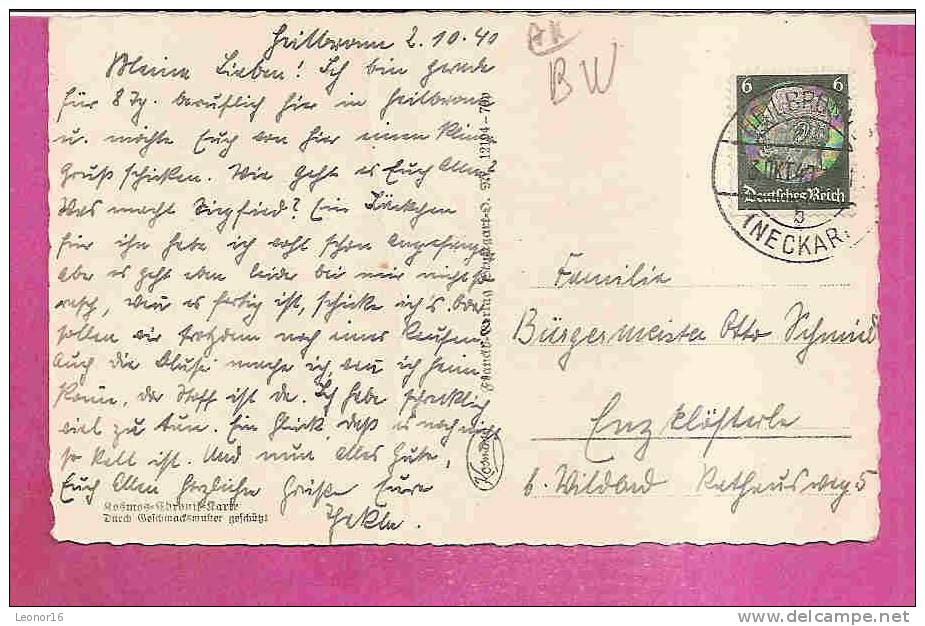 Heilbronn 2.10.40
Meine Lieben! Ich bin gerade
für 8 Tg. beruflich hier in Heilbronn
u. möchte Euch von hier einen kleinen
Gruß schicken. Wie geht es Euch Allen?
Was macht Siegfried? Ein Jäckchen
für ihn habe ich wohl schon angefangen
aber es geht eben leider bei mir nicht so
rasch, wenn es fertig ist, schicke ich's. Oder
sollen wir trotzdem noch eines kaufen.
Auch die Bluse mache ich, wenn ich heim
komme, der Stoff ist da. Ich habe schrecklich
viel zu tun. Ein Glück, daß es noch nicht
so kalt ist. Und nun alles Gute,
Euch Allen herzliche Grüße Eure
Thekla.
Kosmos-Chronik-Karte
Durch Geschmacksmuster geschützt
Franckh-Verlag Stuttgart-O. Nr. 12104
Kosmos
AK
BW
6 6
Deutsches Reich
HEILBRONN
OKT.
b
(NECKAR)
Familie
Bürgermeister Otto Schmid
Enzklösterle
b. Wildbad Rathausweg 5
Leonor16
www.delcampe.net